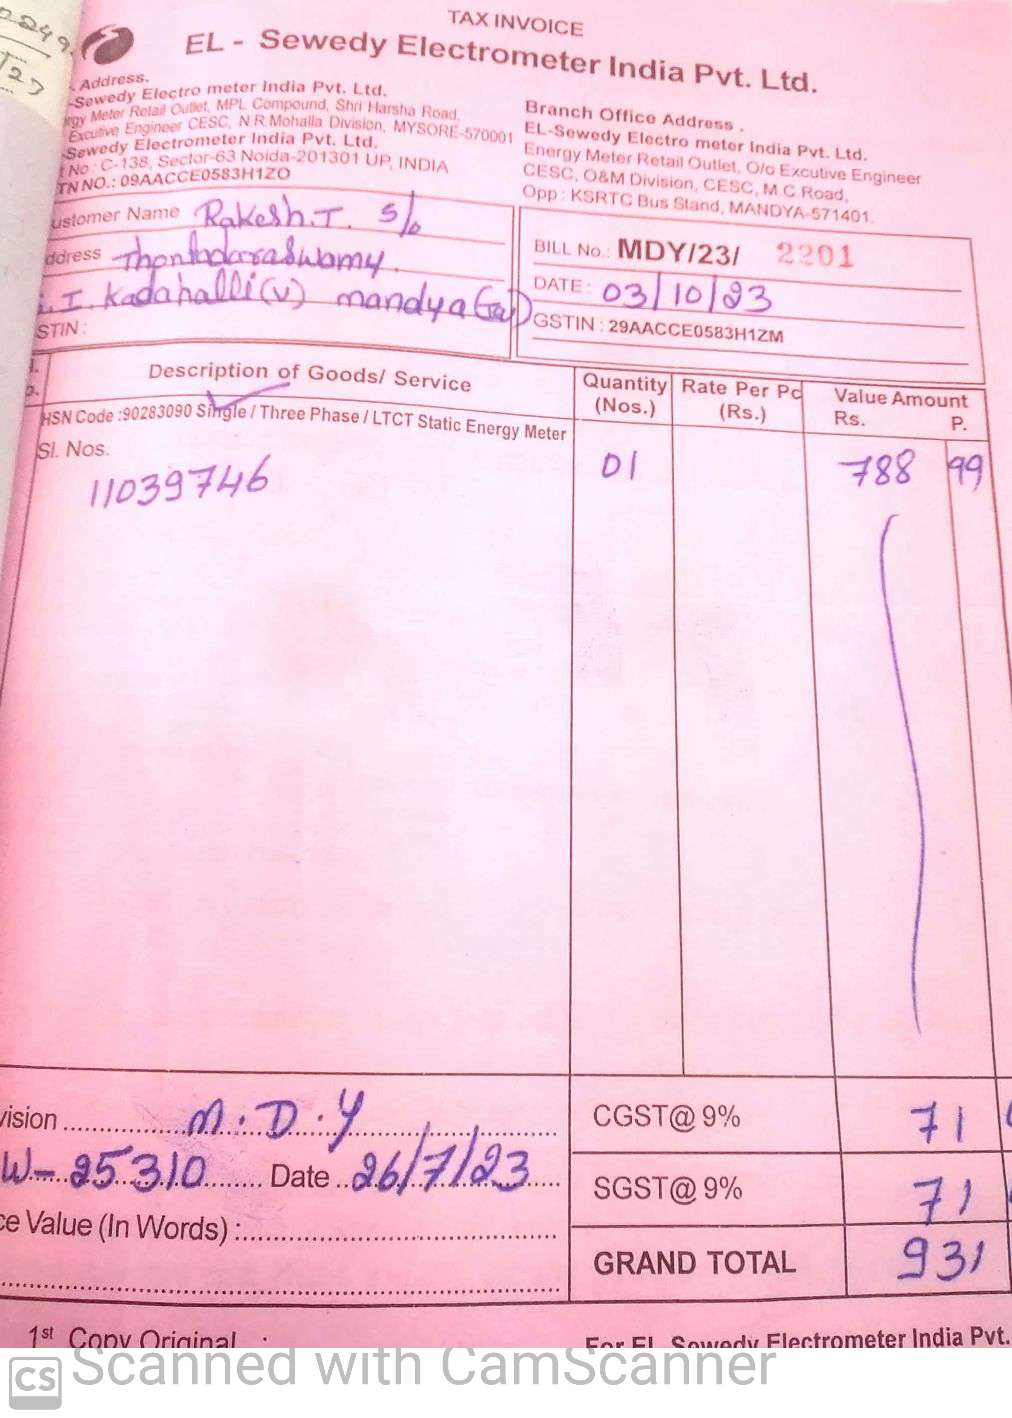 TAX INVOICE
EL - Sewedy Electrometer India Pvt. Ltd.
Address.
-Sewedy Electro meter India Pvt. Ltd.
rgy Meter Retail Outlet, MPL Compound, Shri Harsha Road,
Excutive Engineer CESC, N R Mohalla Division, MYSORE-570001
Sewedy Electrometer India Pvt. Ltd.
No : C-138, Sector-63 Noida-201301 UP, INDIA
TN NO.: 09AACCE0583H1ZO
Branch Office Address .
EL-Sewedy Electro meter India Pvt. Ltd.
Energy Meter Retail Outlet, O/o Excutive Engineer
CESC, O&M Division, CESC, M.C Road,
Opp : KSRTC Bus Stand, MANDYA-571401.
ustomer Name Rakesh.T. S/o
ddress Thontadaraswamy.
I. Kadahalli (V) mandya (Ta)
STIN :
BILL No.: MDY/23/ 2201
DATE : 03/10/23
GSTIN : 29AACCE0583H1ZM
Description of Goods/ Service
Quantity (Nos.)
Rate Per Pc (Rs.)
Value Amount
Rs. P.
HSN Code :90283090 Single / Three Phase / LTCT Static Energy Meter
Sl. Nos.
11039746 01 788 99
vision M.D.Y
W-25310 Date 26/7/23
ce Value (In Words) :
CGST@ 9% 71
SGST@ 9% 71
GRAND TOTAL 931
1st Copy Original :
For EL Sewedy Electrometer India Pvt.
CS Scanned with CamScanner